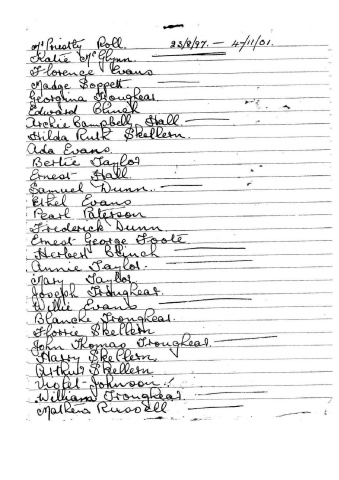 Mt Priestly Roll. 23/8/97. — 4/11/01.
Katie McGlynn.
Florence Evans
Madge Soppett
Georgina Troughear
Edward Clinch
Archie Campbell Hall
Hilda Ruth Skellern.
Ada Evans.
Bertie Taylor
Ernest Hall
Samuel Dunn.
Ethel Evans
Pearl Paterson
Frederick Dunn
Ernest George Foote
Herbert Clinch
Annie Taylor.
Mary Taylor
Joseph Troughear.
Willie Evans
Blanche Troughear.
Florrie Skellern
John Thomas Troughear.
Harry Skellern
Arthur Skellern
Violet Johnson.
William Troughear.
Russell